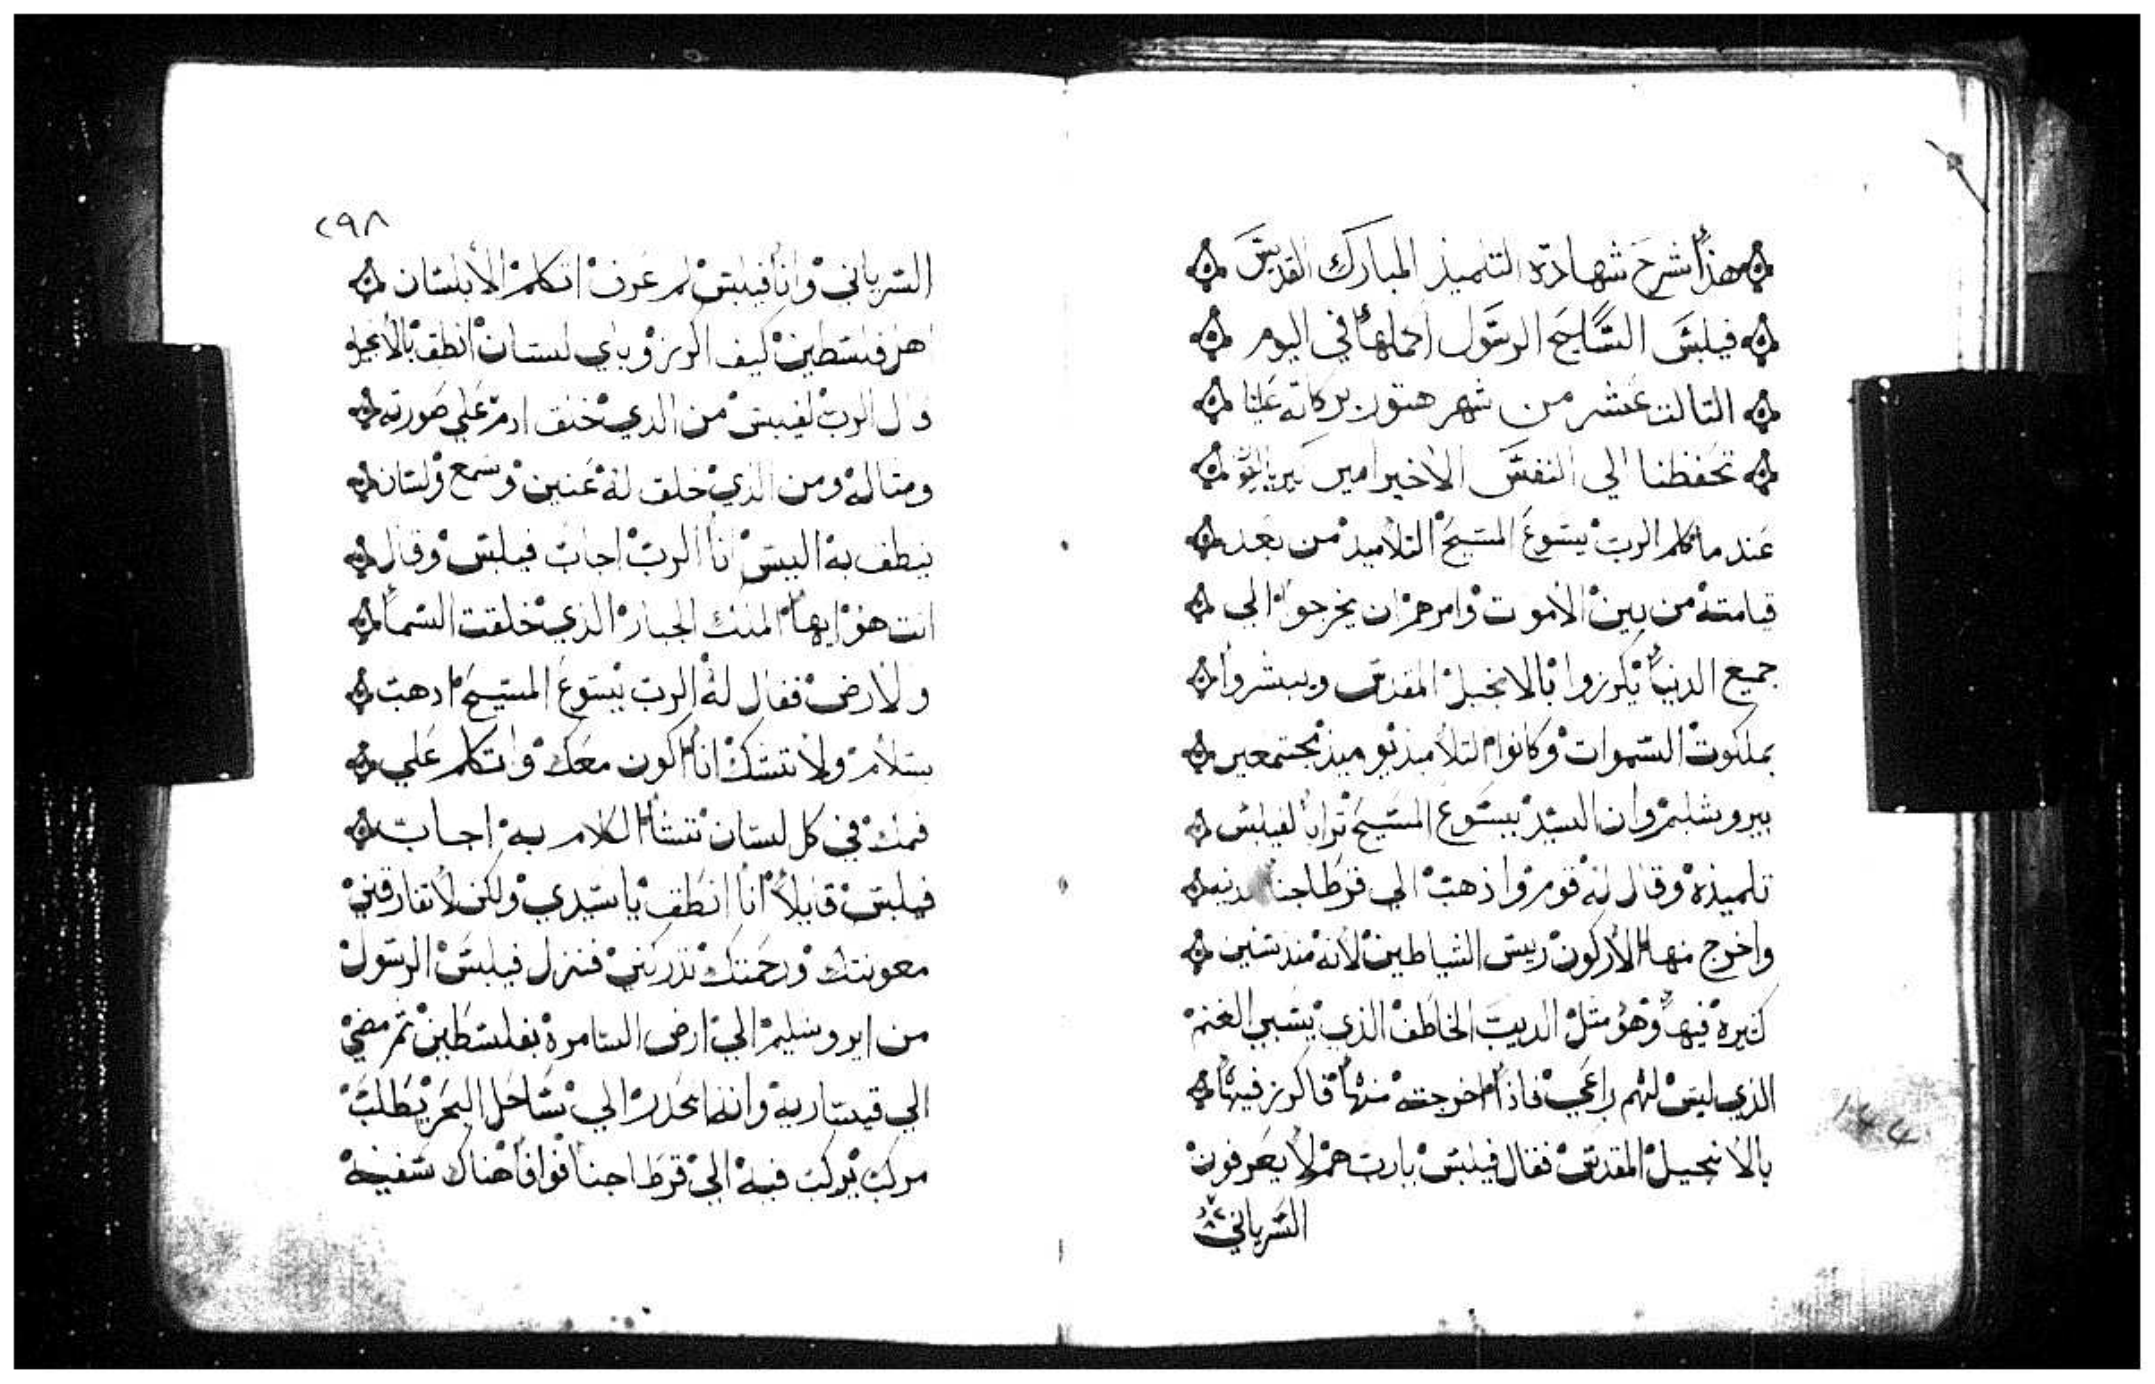 هذا شرح شهادة التلميذ المبارك القديس
فيلبس السليح الرسول اكملها في اليوم
التالت عشر من شهر هتور بركاته علينا
تحفظنا الي النفس الاخير امين
عند ما كلم الرب يسوع المسيح التلاميد من بعد
قيامته من بين الاموت وامرهم ان يخرجوا الي
جميع الدنيا يكرزوا بالانجيل المقدس ويبشروا
بملكوت السموات وكانوا التلاميذ يوميذ مجتمعين
بيروشليم وان السيد يسوع المسيح ترايا لفيلبس
تلميذه وقال له قوم واذهب الي قرطاجنا مدينه
واخرج منها الاركون ريس الشياطين لانه مند سنين
كتيره فيها وهو مثل الديب الخاطف الذي يسبي الغنم
الذي ليس لهم راعي فاذا اخرجته منها فاكرز فيها
بالانجيل المقدس فقال فيلبس يارب هم لا يعرفون
السرياني
٢٩٨
السرياني وانا فيلبس لم عرف اتكلم الا بلسان
اهل فلسطين كيف اكرز وباي لسان انطق بالانجيل
قال الرب لفيلبس من الدي خلق ادم علي صورته
ومتاله ومن الذي خلق له عنين وسمع ولسان
ينطق به اليس انا الرب اجاب فيلبس وقال
انت هو ايها الملك الجبار الذي خلقت السما
ولارض فقال له الرب يسوع المسيح ادهب
بسلام ولا تشك انا اكون معك واتكلم علي
فمك في كل لسان تشا الكلام به اجاب
فيلبس قايلا انا انطق ياسيدي ولكن لا تفارقني
معونتك ورحمتك تدركني فنزل فيلبس الرسول
من ايروشليم الي ارض السامره بفلسطين تم مضي
الي قيساريه وانه انحدر الي ساحل البحر يطلب
مركب يركب فيه الي قرطاجنا فوافا هناك سفينه